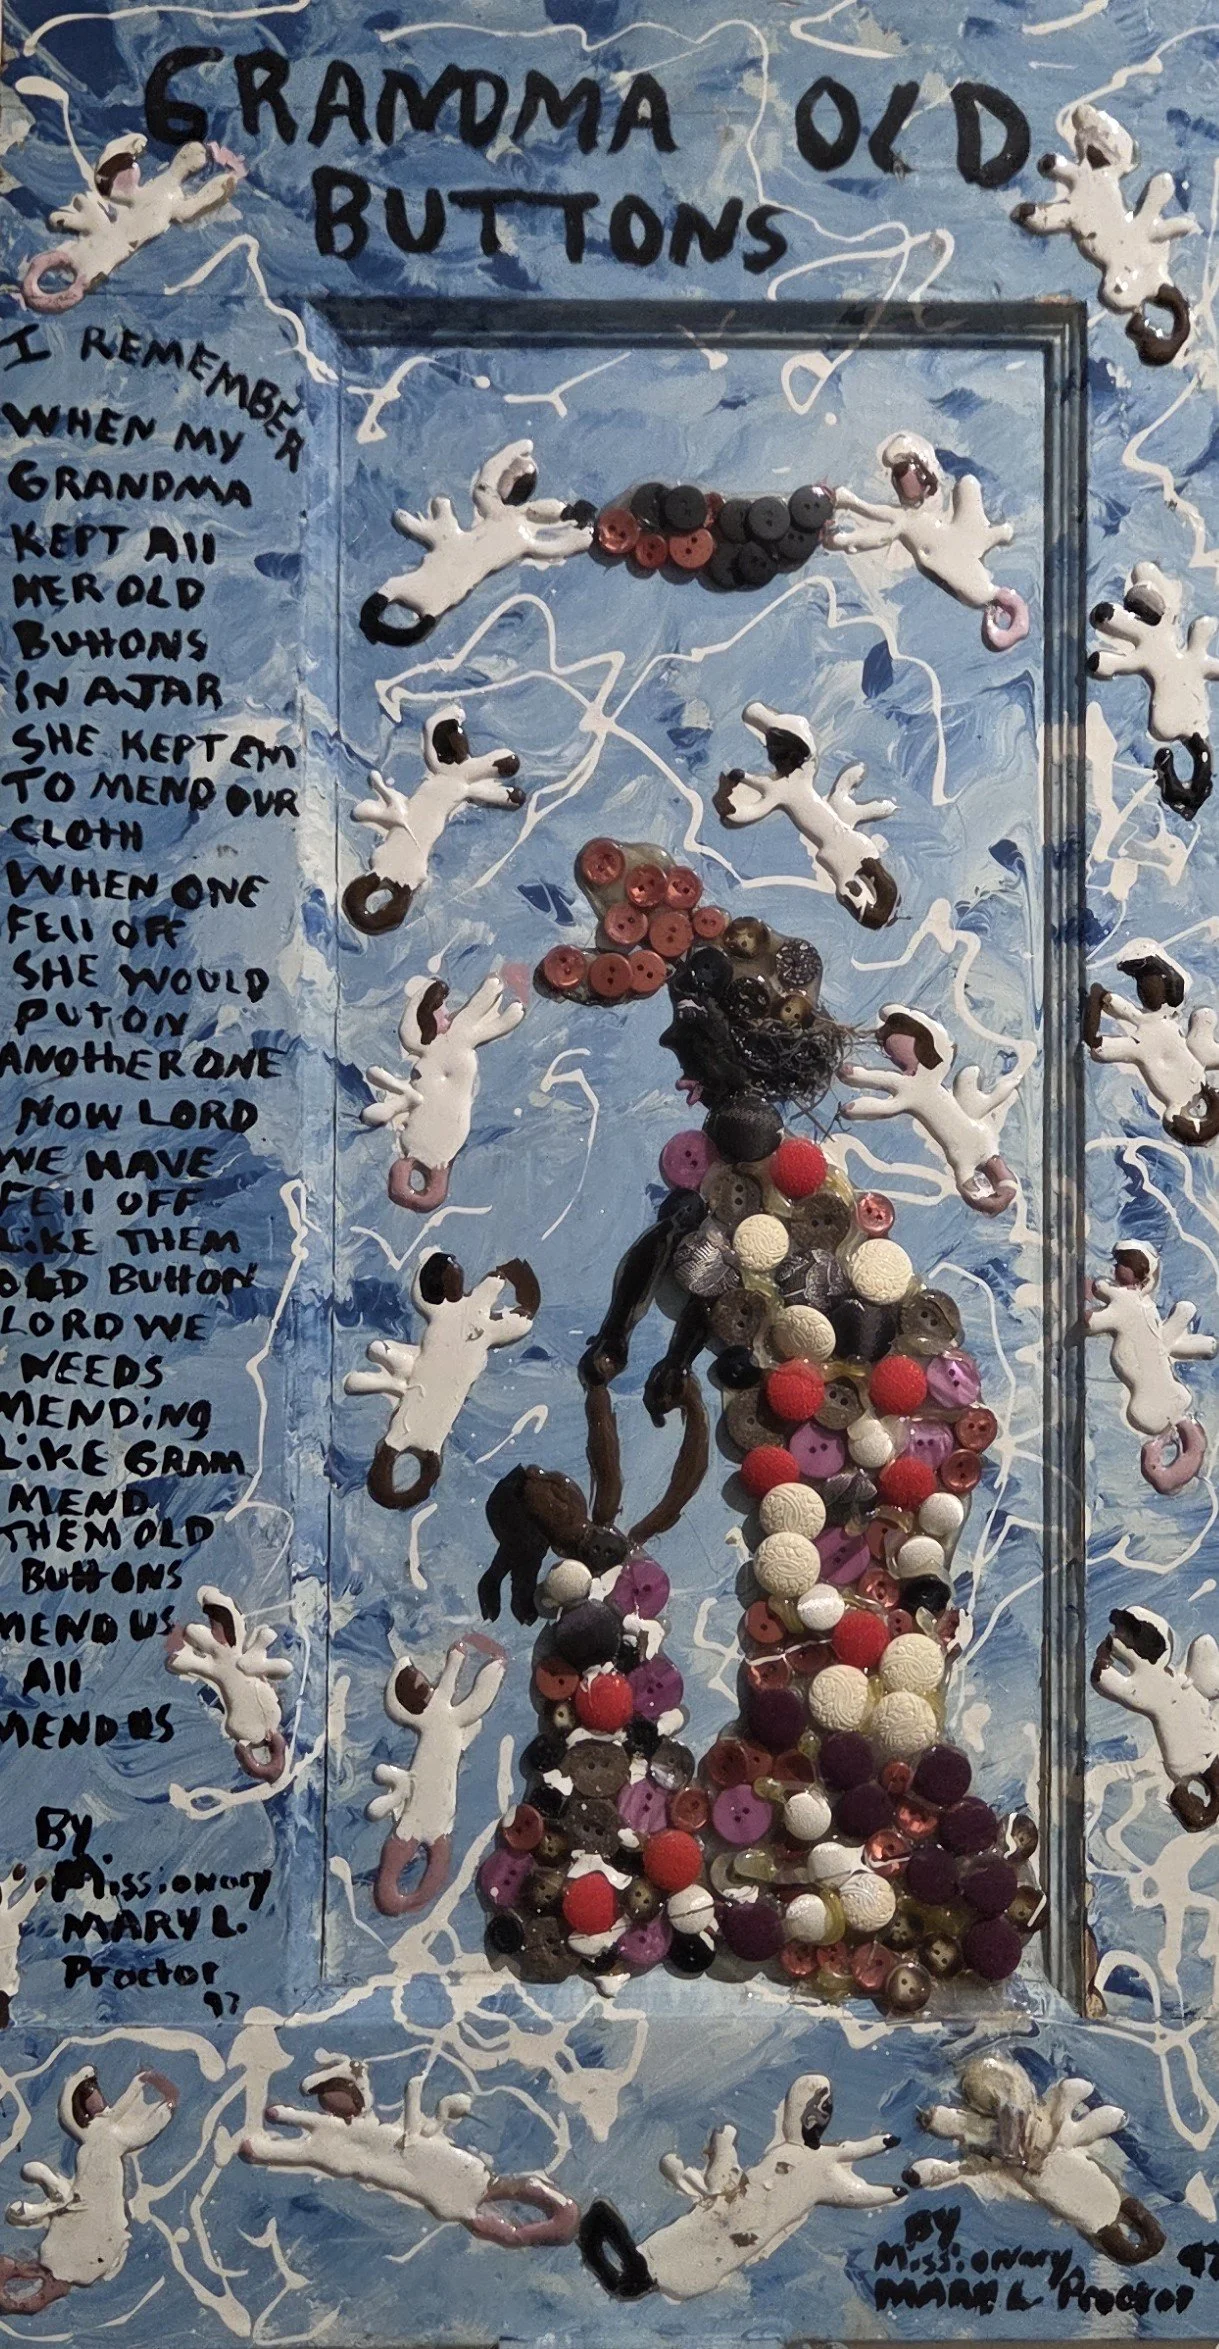 GRANDMA OLD
BUTTONS
I REMEMBER
WHEN MY
GRANDMA
KEPT All
HER OLD
BUttONS
IN A JAR
SHE KEPT EM
TO MEND OUR
CLOtH
WHEN ONE
FEll OFF
SHE WOULD
PUT ON
ANOthER ONE
NOW LORD
WE HAVE
FEll OFF
LiKE THEM
OLD BUttON
LORD WE
NEEDS
MENDiNg
LiKE GRAM
MEND
THEM OLD
BUttONS
MEND US
All
MEND US
By
Missionary
MARY L.
Proctor
97
By
Missionary 97
MARY L Proctor